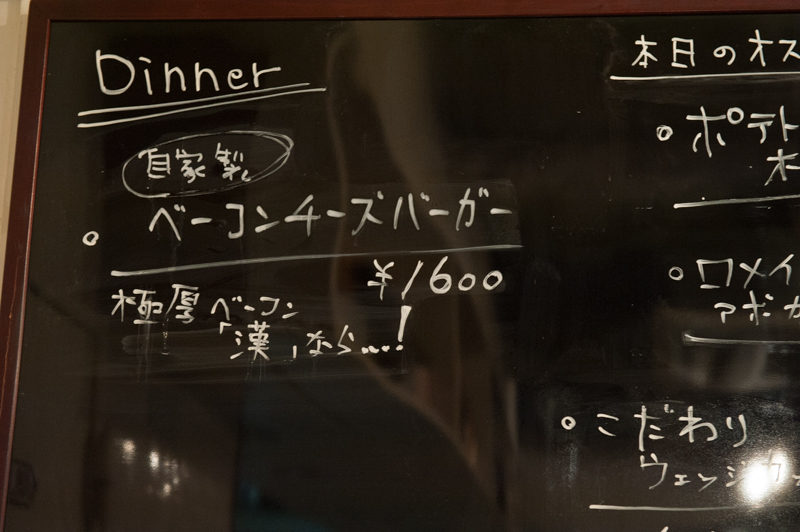 Dinner
自家製
ベーコンチーズバーガー
¥1600
極厚ベーコン
「漢」なら....!
本日のオス
ポテト
ロメイ
アボカ
こだわり
ウェッジカッ